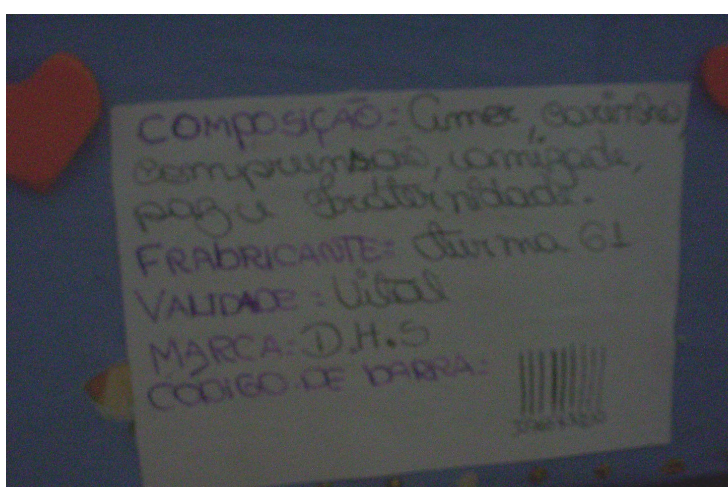 COMPOSIÇÃO: Amor, carinho,
compreensão, amizade,
paz e fraternidade.
FRABRICANTE: turma 61
VALIDADE: Vital
MARCA: D.H.S
CÓDIGO DE BARRA: